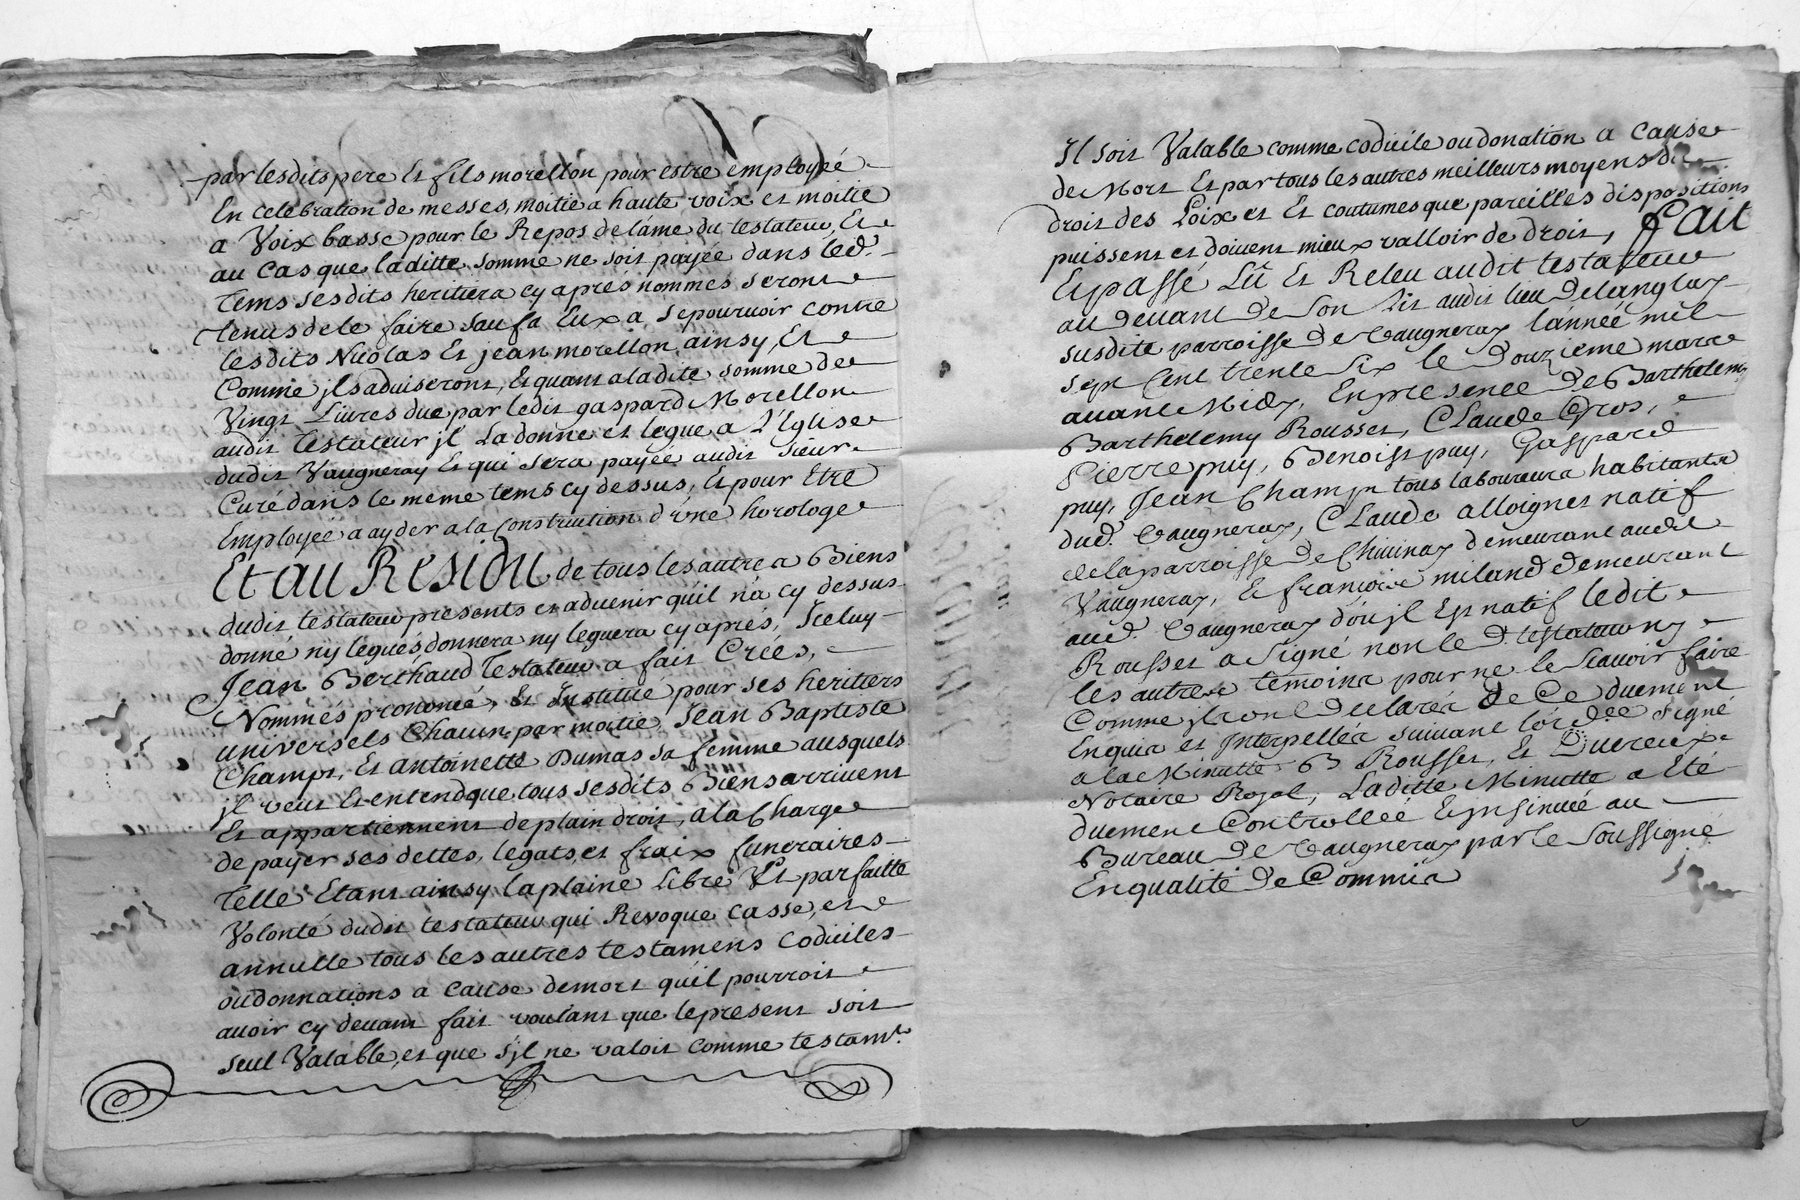 par lesdits pere Et fils morellon pour estre employeé
En celebration de messes, moitie a haute voix et moitie
a Voix basse pour le Repos de láme du testateur, Et
au cas que laditte somme ne soit payée dans led.
tems sesdits heritiers cy aprés nommes seront
tenus de le faire sauf a Eux a se pourvoir contre
lesdits Nicolas Et jean morellon, ainsy, Et
Comme jls aduiseront, Et quant a ladite somme de
Vingt Livres due par ledit gaspard Morellon
audit testateur jl La donne et legue a L'Eglise
dudit Vaugneray Et qui sera payée audit Sieur
Curé dans le meme tems cy dessus, Et pour Etre
Employée a ayder a la Construction d'vne horologe
Et au Residu de tous les autres Biens
dudit testateur presents et aduenir qu'il n'a cy dessus
donné ny légués, donnera ny leguera cy aprés, Jceluy
Jean Berthaud testateur a fait Créés,
Nommés prononcé, Et Institué pour ses heritiers
universels Chacun par moitié, Jean Baptiste
Champt, Et antoinette Dumas sa femme ausquels
jl veut Et entend que tous sesdits Biens arrivent
Et appartiennent de plain droit, a la Charge
de payer ses dettes, legats, et fraix funeraires
telle Etant ainsy la plaine Libre Et parfaitte
Volonté dudit testateur qui Revoque casse, et
annulle tous les autres testamens codiciles
ou donnations a cause de mort qu'il pourroit
auoir cy deuant fait voulant que le present soit
seul Valable, et que s'jl ne valoit comme testamt.
Jl soit Valable comme codicile ou donation a cause
de Mort Et par tous les autres meilleurs moyens de
droit des Loix et Et coutumes que pareilles dispositions
puissent et doivent mieux valloir de droit, Fait
Et passé Lû Et Releu audit testateur
au deuant de son lit audit lieu De
susdite parroisse de Vaugneray l'année mil
sept Cent trente six le Douzieme mars
auant Midy, En presence de Barthelemy
Barthelemy Rousset, Claude Gros,
Pierre puy, Benoist puy, Gaspard
puy, Jean Champt tous laboureurs habitants
dud. Vaugneray, Claude alloignet natif
de la parroisse de Chiuinay demeurant audit
Vaugneray, Et françois miland demeurant
aud. Vaugneray d'ou jl Est natif ledit
Rousset a signé non le d testateur ny
les autres témoins pour ne le sçauoir faire
Comme jls ont declarés de Ce duement
Enquis et Interpellés suivant l'ordce signé
a la Minutte B Rousset, Et Ducreux
Notaire Royal, Laditte Minutte a Eté
duement Controllée Et jnsinuée au
Bureau de Vaugneray par le Soussigné
En qualité de Commis